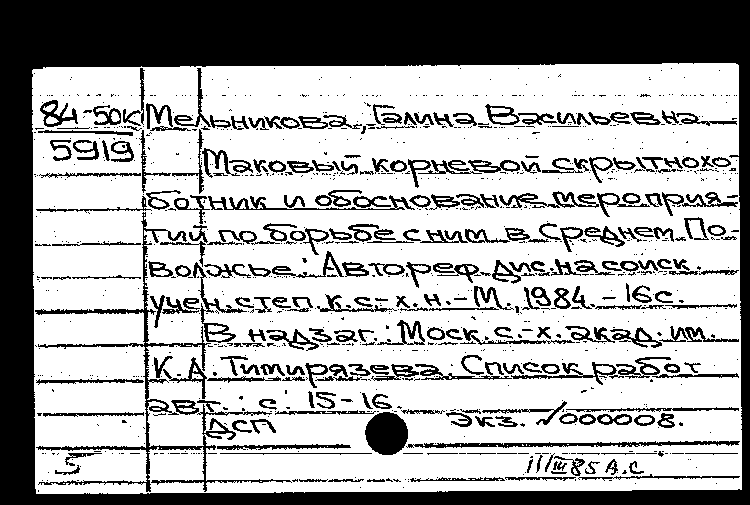 84-50к Мельникова, Галина Васильевна
5919
Маковый корневой скрытнохо-
ботник и обоснование мероприя-
тий по борьбе с ним в Среднем По-
волжье: Автореф. дис. на соиск.
учен. степ. к. с.-х. н. - М., 1984. - 16 с.
В надзаг.: Моск. с.-х. акад. им.
К. А. Тимирязева. Список работ
авт.: с. 15-16.
ДСП Экз. √000008.
5 III 85 А.С.